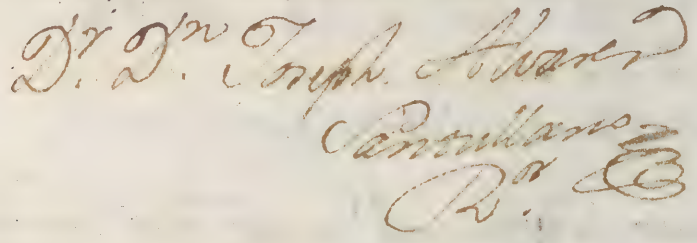 Dr. Dn. Joseph Alvarez
Santullano
Ror.